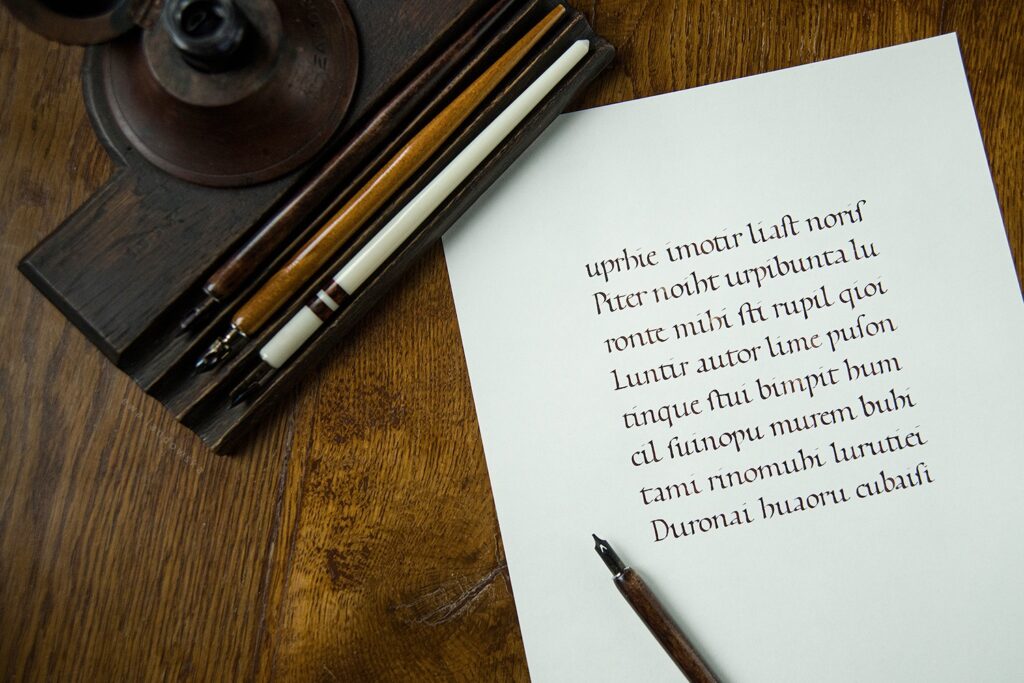 uprhie imotir liaſt noriſ
Piter noiht urpibunta lu
ronte mihi ſti rupil qioi
Luntir autor lime puſon
tinque ſtui bimpit hum
cil ſuinopu murem buhi
tami rinomuhi lurutiei
Duronai huaoru cubaiſi